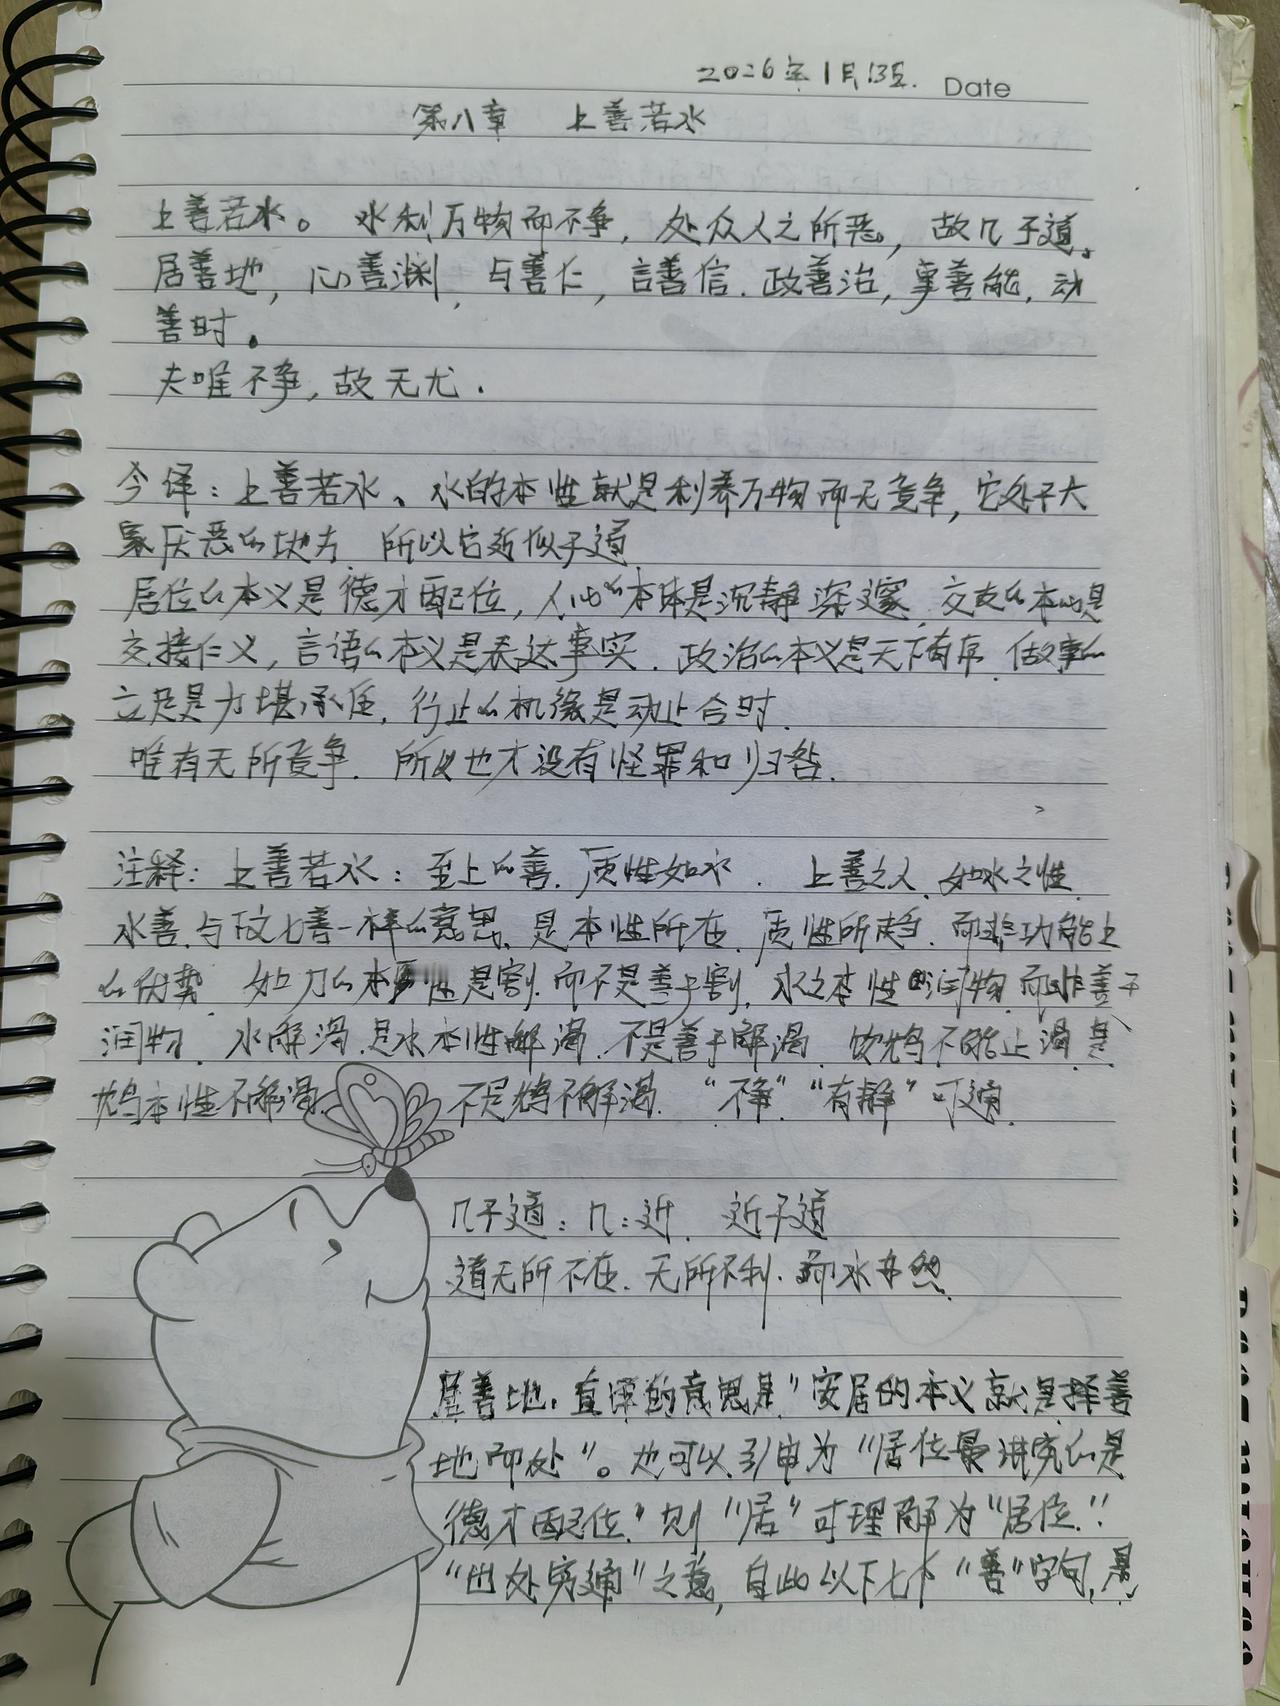 2026年1月13日. Date
第八章 上善若水
上善若水。水利万物而不争，处众人之所恶，故几于道。
居善地，心善渊，与善仁，言善信.政善治，事善能，动
善时。
夫唯不争，故无尤.
今译：上善若水、水的本性就是利养万物而无竞争，它处于大
家厌恶的地方 所以它近似于道
居位的本义是德才配位，人心的本体是沉静深邃.交友的本心是
交接仁义，言语的本义是表达事实.政治的本义是天下有序 做事的
立足是力堪承任，行止的机缘是动止合时.
唯有无所竞争.所以也才没有怪罪和归咎.
注释：上善若水：至上的善.质性如水.上善之人 如水之性
水善.与下文七善一样的意思、是本性所在.质性所趋.而非功能上
的优势 如刀的本性是割.而不是善于割.水之本性润物而非善于
润物.水解渴是水本性解渴.不是善于解渴 饮鸩不能止渴是
鸩本性不解渴.不是鸩不解渴."不争""有静"可通.
几于道：几：近.近于道
道无所不在.无所不利.而水亦然.
居善地.直译的意思是"安居的本义就是择善
地而处"。也可以引申为"居位最讲究的是
德才配位"则"居"可理解为"居位"
"出处穷通"之意，自此以下七个"善"字句，是